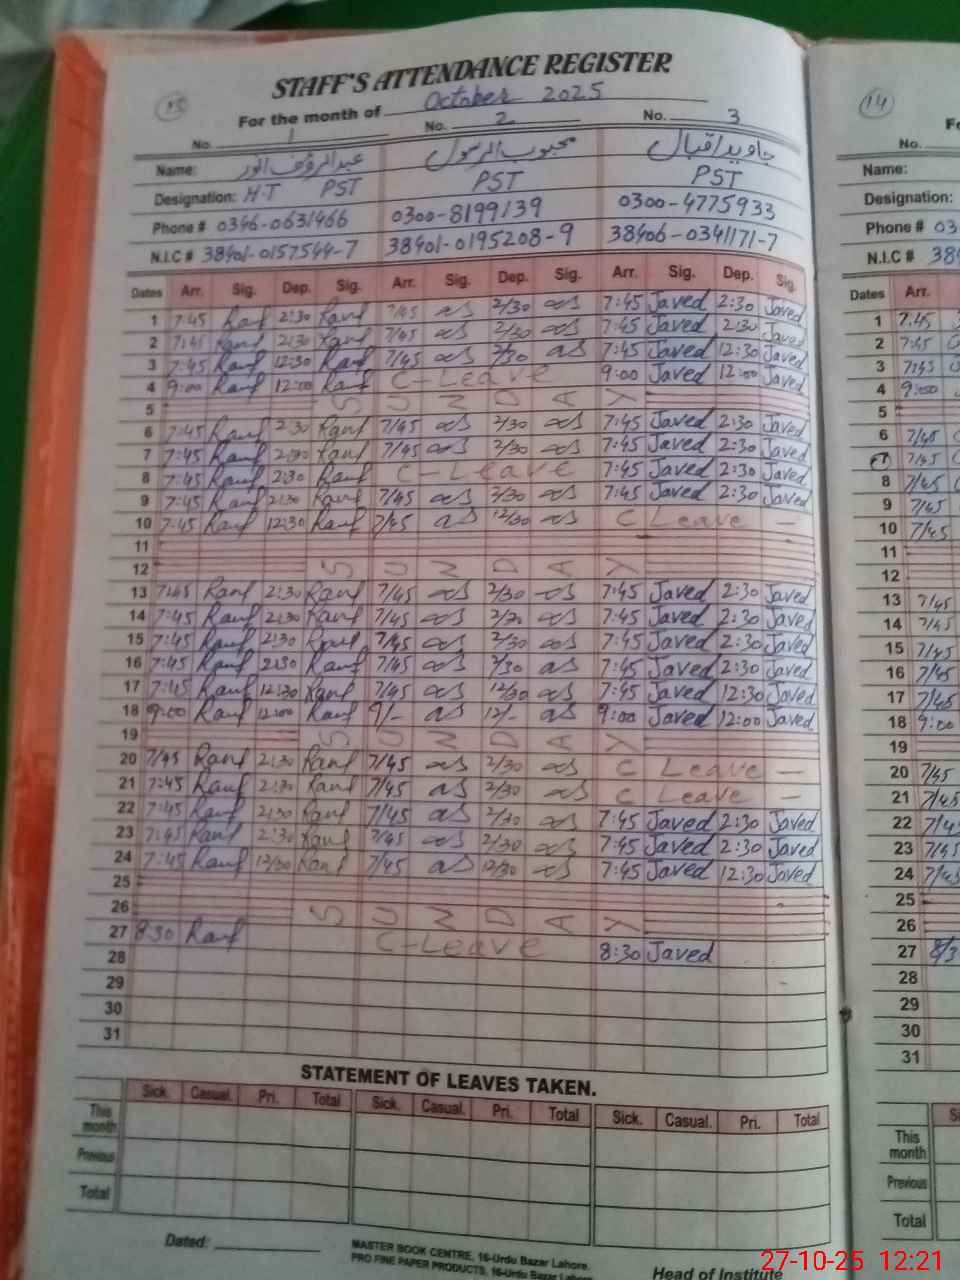 STAFF'S ATTENDANCE REGISTER
For the month of October 2025
No. 1 No. 2 No. 3
Name: عبدالرؤف انور محبوب الرسول جاوید اقبال
Designation: H-T PST PST PST
Phone # 0346-0631466 0300-8199139 0300-4775933
N.I.C # 38401-0157544-7 38401-0195208-9 38406-0341171-7
Dates Arr. Sig. Dep. Sig. Arr. Sig. Dep. Sig. Arr. Sig. Dep. Sig.
1 7:45 Rauf 2:30 Rauf 7/45 2/30 7:45 Javed 2:30 Javed
2 7:45 Rauf 2:30 Rauf 7/45 2/30 7:45 Javed 2:30 Javed
3 7:45 Rauf 12:30 Rauf 7/45 7:45 Javed 12:30 Javed
4 9:00 Rauf 12:00 Rauf C-Leave 9:00 Javed 12:00 Javed
5 SUNDAY
6 7:45 Rauf 2:30 Rauf 7/45 2/30 7:45 Javed 2:30 Javed
7 7:45 Rauf 2:30 Rauf 7/45 2/30 7:45 Javed 2:30 Javed
8 7:45 Rauf 2:30 Rauf C-Leave 7:45 Javed 2:30 Javed
9 7:45 Rauf 2:30 Rauf 7/45 2/30 7:45 Javed 2:30 Javed
10 7:45 Rauf 12:30 Rauf 7/45 12/30 C Leave —
11
12 SUNDAY
13 7:45 Rauf 2:30 Rauf 7/45 2/30 7:45 Javed 2:30 Javed
14 7:45 Rauf 2:30 Rauf 7/45 2/30 7:45 Javed 2:30 Javed
15 7:45 Rauf 2:30 Rauf 7/45 2/30 7:45 Javed 2:30 Javed
16 7:45 Rauf 2:30 Rauf 7/45 2/30 7:45 Javed 2:30 Javed
17 7:45 Rauf 12:30 Rauf 7/45 12/30 7:45 Javed 12:30 Javed
18 9:00 Rauf 12:00 Rauf 9/- 12/- 9:00 Javed 12:00 Javed
19 SUNDAY
20 7/45 Rauf 2:30 Rauf 7/45 2/30 C Leave —
21 7:45 Rauf 2:30 Rauf 7/45 2/30 C Leave —
22 7:45 Rauf 2:30 Rauf 7/45 2/30 7:45 Javed 2:30 Javed
23 7:45 Rauf 2:30 Rauf 7/45 2/30 7:45 Javed 2:30 Javed
24 7:45 Rauf 12/30 Rauf 7/45 12/30 7:45 Javed 12:30 Javed
25
26 SUNDAY
27 8:30 Rauf C-Leave 8:30 Javed
28
29
30
31
STATEMENT OF LEAVES TAKEN.
Sick. Casual. Pri. Total Sick. Casual. Pri. Total Sick. Casual. Pri. Total
This month
Previous
Total
Dated:
MASTER BOOK CENTRE, 16-Urdu Bazar Lahore.
PRO FINE PAPER PRODUCTS, 16-Urdu Bazar Lahore.
Head of Institute
14
No.
Name:
Designation:
Phone # 03
N.I.C #
Dates Arr.
1 7:45
2 7:45
3 7:45
4 9:00
5
6 7/45
7 7/45
8 7/45
9 7/45
10 7/45
11
12
13 7/45
14 7/45
15 7/45
16 7/45
17 7/45
18 9:00
19
20 7/45
21 7/45
22 7/4
23 7/45
24 7/45
25
26
27 8/3
28
29
30
31
This month
Previous
Total
27-10-25 12:21